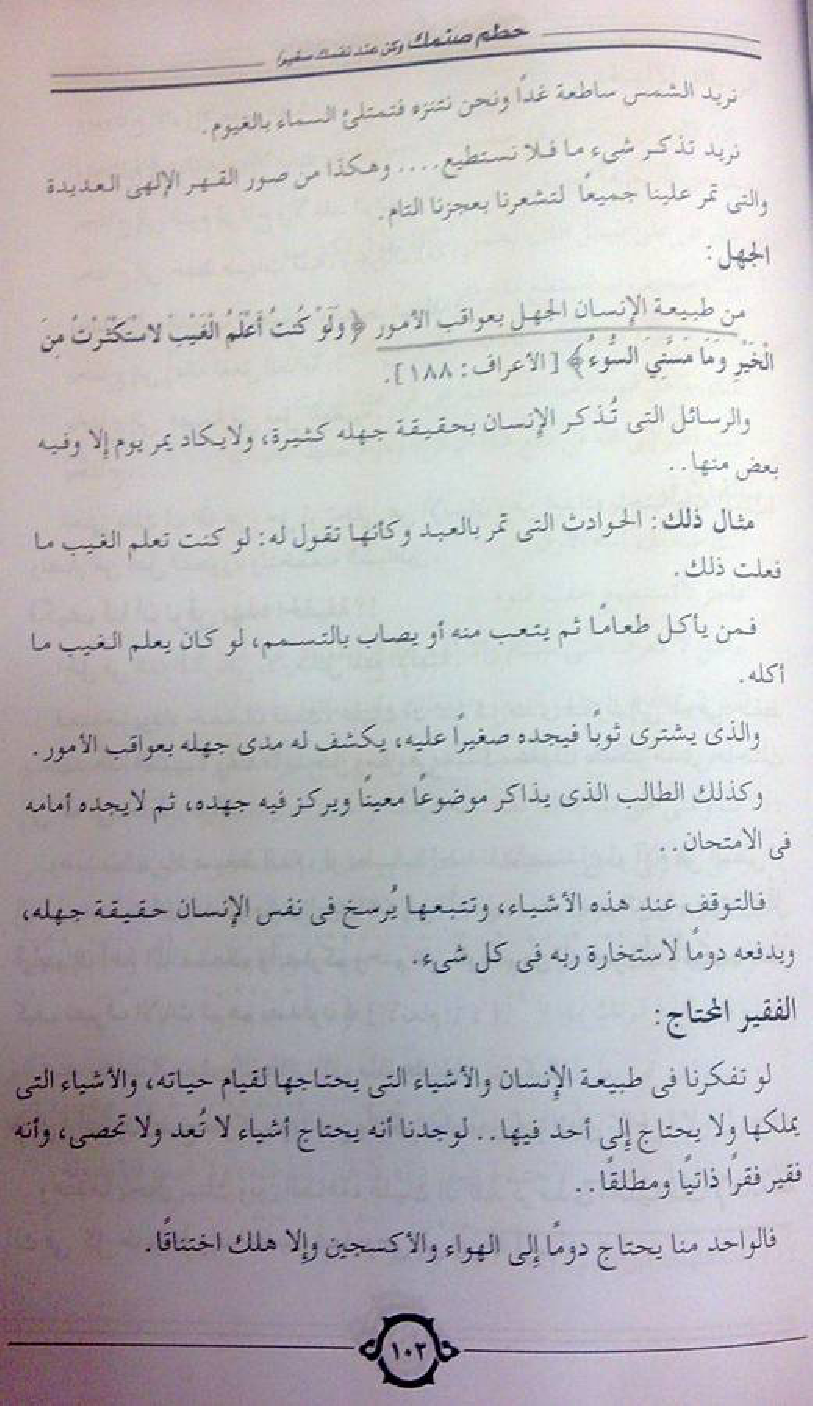 حطم صنمك وكن عند نفسك صغيرًا
نريد الشمس ساطعة غدًا ونحن نتنزه فتمتلئ السماء بالغيوم.
نريد تذكر شىء ما فلا نستطيع.... وهكذا من صور القهر الإلهى العديدة
والتى تمر علينا جميعًا لتشعرنا بعجزنا التام.
الجهل:
من طبيعة الإنسان الجهل بعواقب الأمور ﴿وَلَوْ كُنتُ أَعْلَمُ الْغَيْبَ لاسْتَكْثَرْتُ مِنَ
الْخَيْرِ وَمَا مَسَّنِيَ السُّوءُ﴾ [الأعراف: ١٨٨].
والرسائل التى تُذكر الإنسان بحقيقة جهله كثيرة، ولايكاد يمر يوم إلا وفيه
بعض منها..
مثال ذلك: الحوادث التى تمر بالعبد وكأنها تقول له: لو كنت تعلم الغيب ما
فعلت ذلك.
فمن يأكل طعامًا ثم يتعب منه أو يصاب بالتسمم، لو كان يعلم الغيب ما
أكله.
والذى يشترى ثوبًا فيجده صغيرًا عليه، يكشف له مدى جهله بعواقب الأمور.
وكذلك الطالب الذى يذاكر موضوعًا معينًا ويركز فيه جهده، ثم لايجده أمامه
فى الامتحان..
فالتوقف عند هذه الأشياء، وتتبعها يُرسخ فى نفس الإنسان حقيقة جهله،
ويدفعه دومًا لاستخارة ربه فى كل شىء.
الفقير المحتاج:
لو تفكرنا فى طبيعة الإنسان والأشياء التى يحتاجها لقيام حياته، والأشياء التى
يملكها ولا يحتاج إلى أحد فيها.. لوجدنا أنه يحتاج أشياء لا تُعد ولا تحصى، وأنه
فقير فقرًا ذاتيًا ومطلقًا..
فالواحد منا يحتاج دومًا إلى الهواء والأكسجين وإلا هلك اختناقًا.
١٠٢